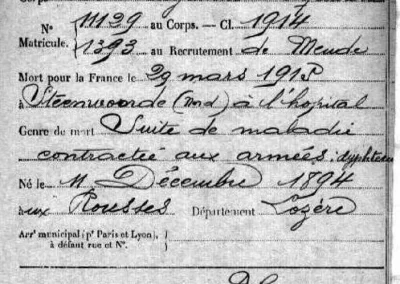 Nº 11129 au Corps. — Cl. 1914
Matricule.
1393 au Recrutement de Mende
Mort pour la France le 29 mars 1915
à Steenvoorde (Nord) à l'hopital
Genre de mort Suite de maladie
contractée aux armées :
Né le 11 Décembre 1894
aux Rousses Département Lozère
Arrt municipal (pr Paris et Lyon),
à défaut rue et Nº.